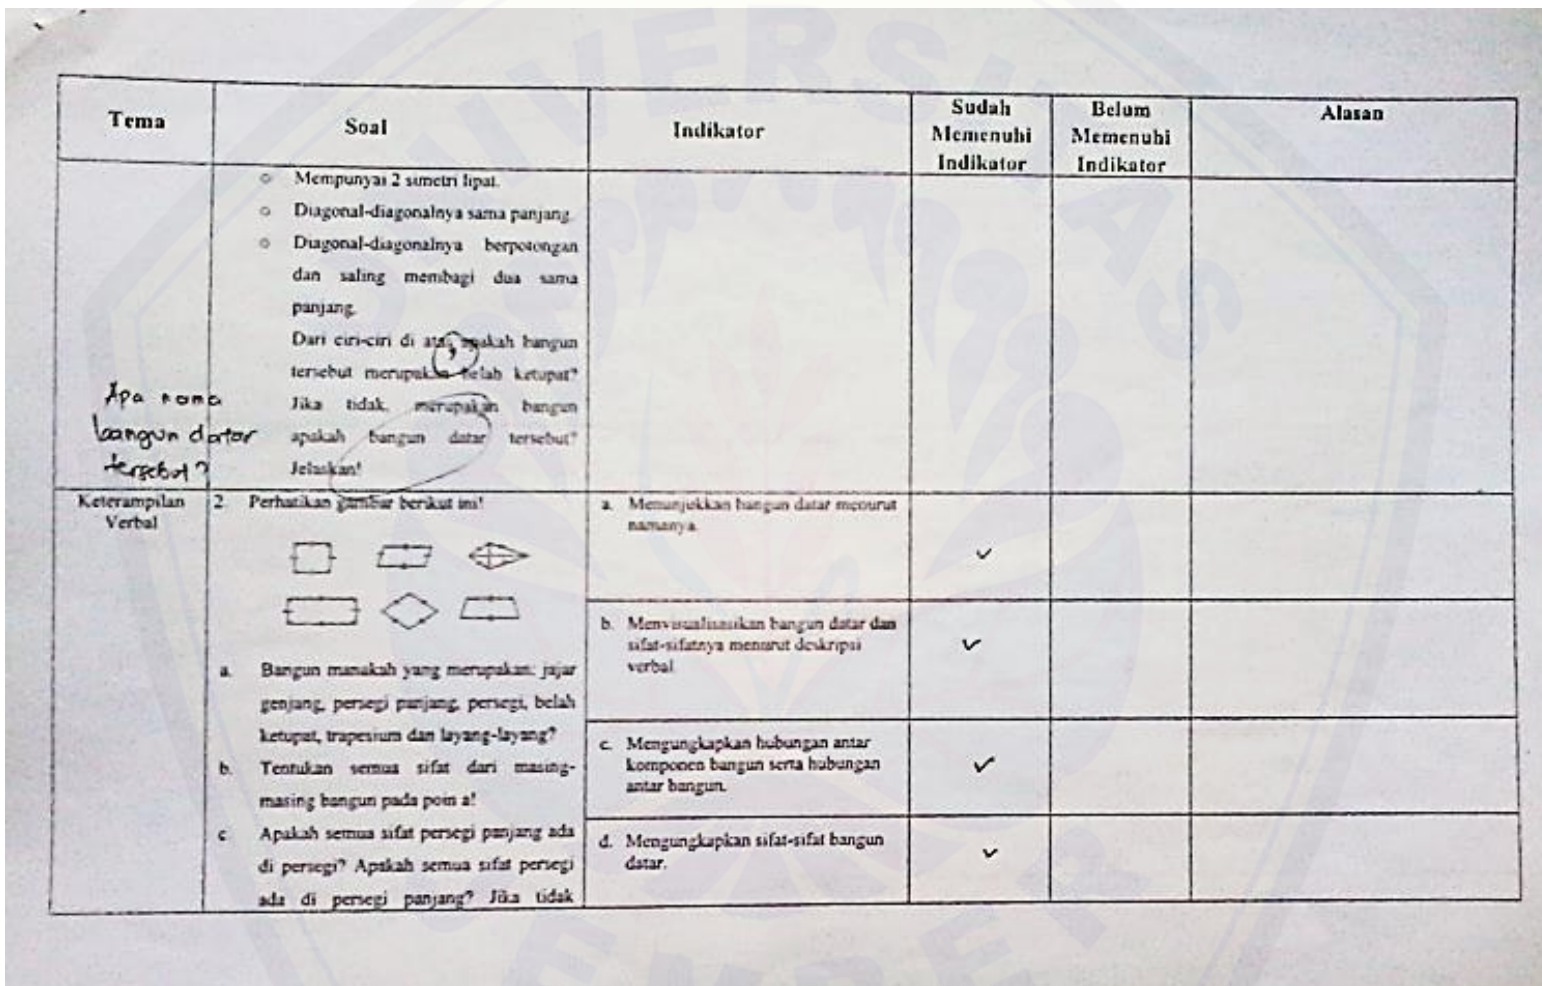 Tema
Soal
Indikator
Sudah
Memenuhi
Indikator
Belum
Memenuhi
Indikator
Alasan
○ Mempunyai 2 simetri lipat.
○ Diagonal-diagonalnya sama panjang.
○ Diagonal-diagonalnya berpotongan
dan saling membagi dua sama
panjang.
Dari ciri-ciri di atas, apakah bangun
tersebut merupakan belah ketupat?
Jika tidak, merupakan bangun
apakah bangun datar tersebut?
Jelaskan!
Apa nama
bangun datar
tersebut?
Keterampilan
Verbal
2. Perhatikan gambar berikut ini!
a. Bangun manakah yang merupakan: jajar
genjang, persegi panjang, persegi, belah
ketupat, trapesium dan layang-layang?
b. Tentukan semua sifat dari masing-
masing bangun pada poin a!
c. Apakah semua sifat persegi panjang ada
di persegi? Apakah semua sifat persegi
ada di persegi panjang? Jika tidak
a. Menunjukkan bangun datar menurut
namanya.
✓
b. Menvisualisasikan bangun datar dan
sifat-sifatnya menurut deskripsi
verbal.
✓
c. Mengungkapkan hubungan antar
komponen bangun serta hubungan
antar bangun.
✓
d. Mengungkapkan sifat-sifat bangun
datar.
✓
UNIVERSITAS
JEMBER